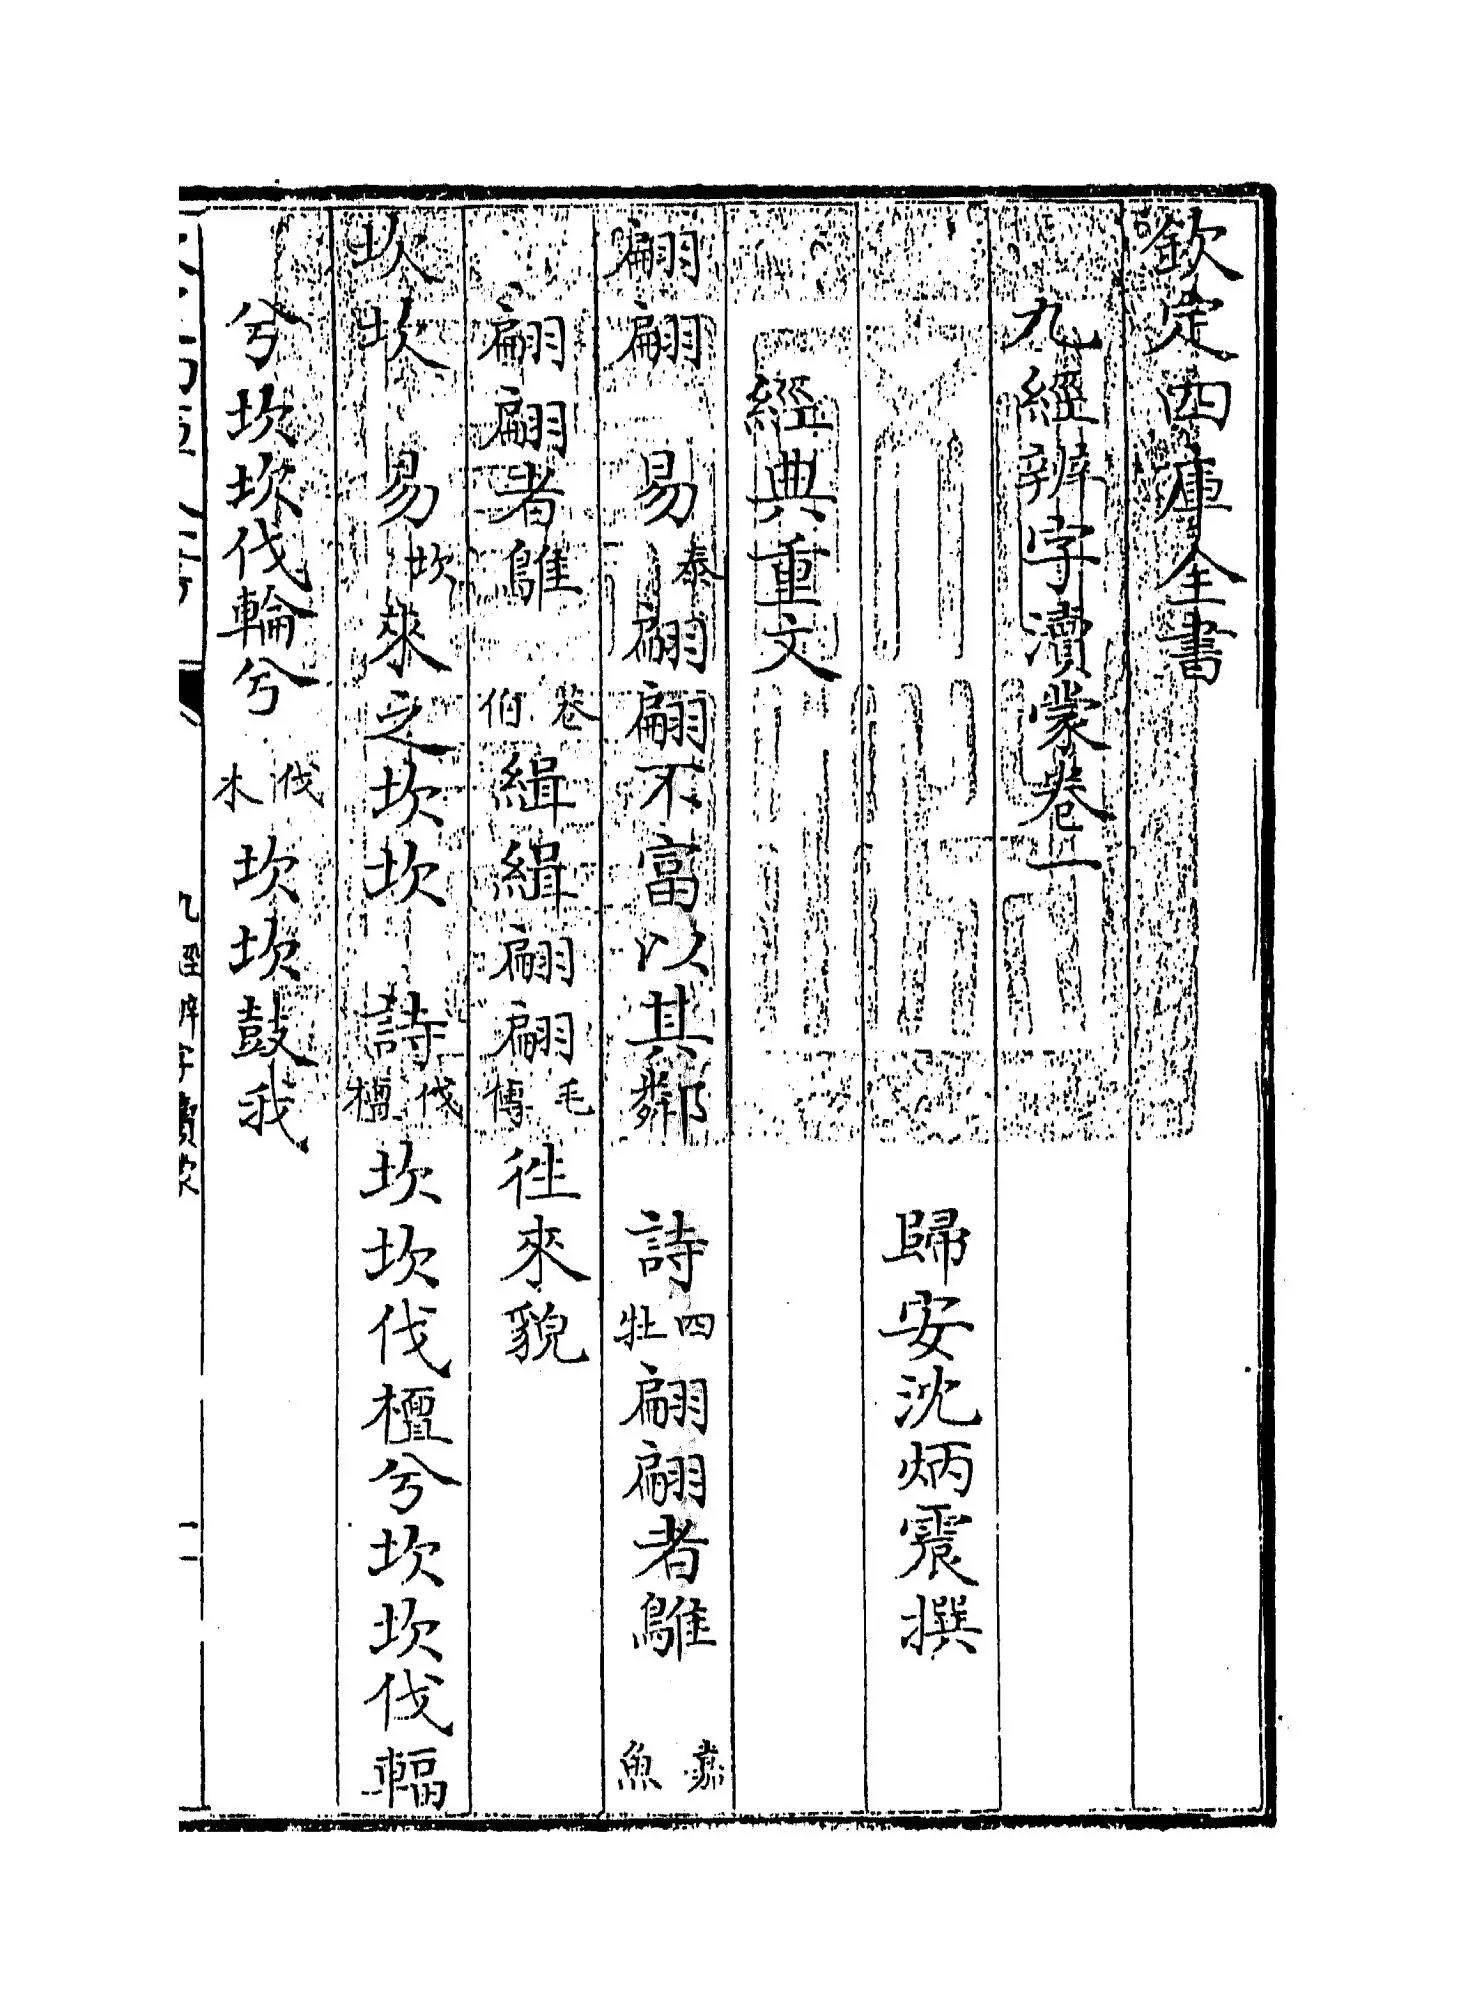 欽定四庫全書
九經辨字瀆蒙卷一
歸安沈炳震撰
經典重文
翩翩 易泰翩翩不富以其鄰 詩四牡翩翩者鵻 嘉魚
翩翩者鵻 巷伯緝緝翩翩毛傳往來貌
坎坎 易坎來之坎坎 詩伐檀坎坎伐檀兮坎坎伐輻
兮坎坎伐輪兮 伐木坎坎鼓我
九經辨字瀆蒙